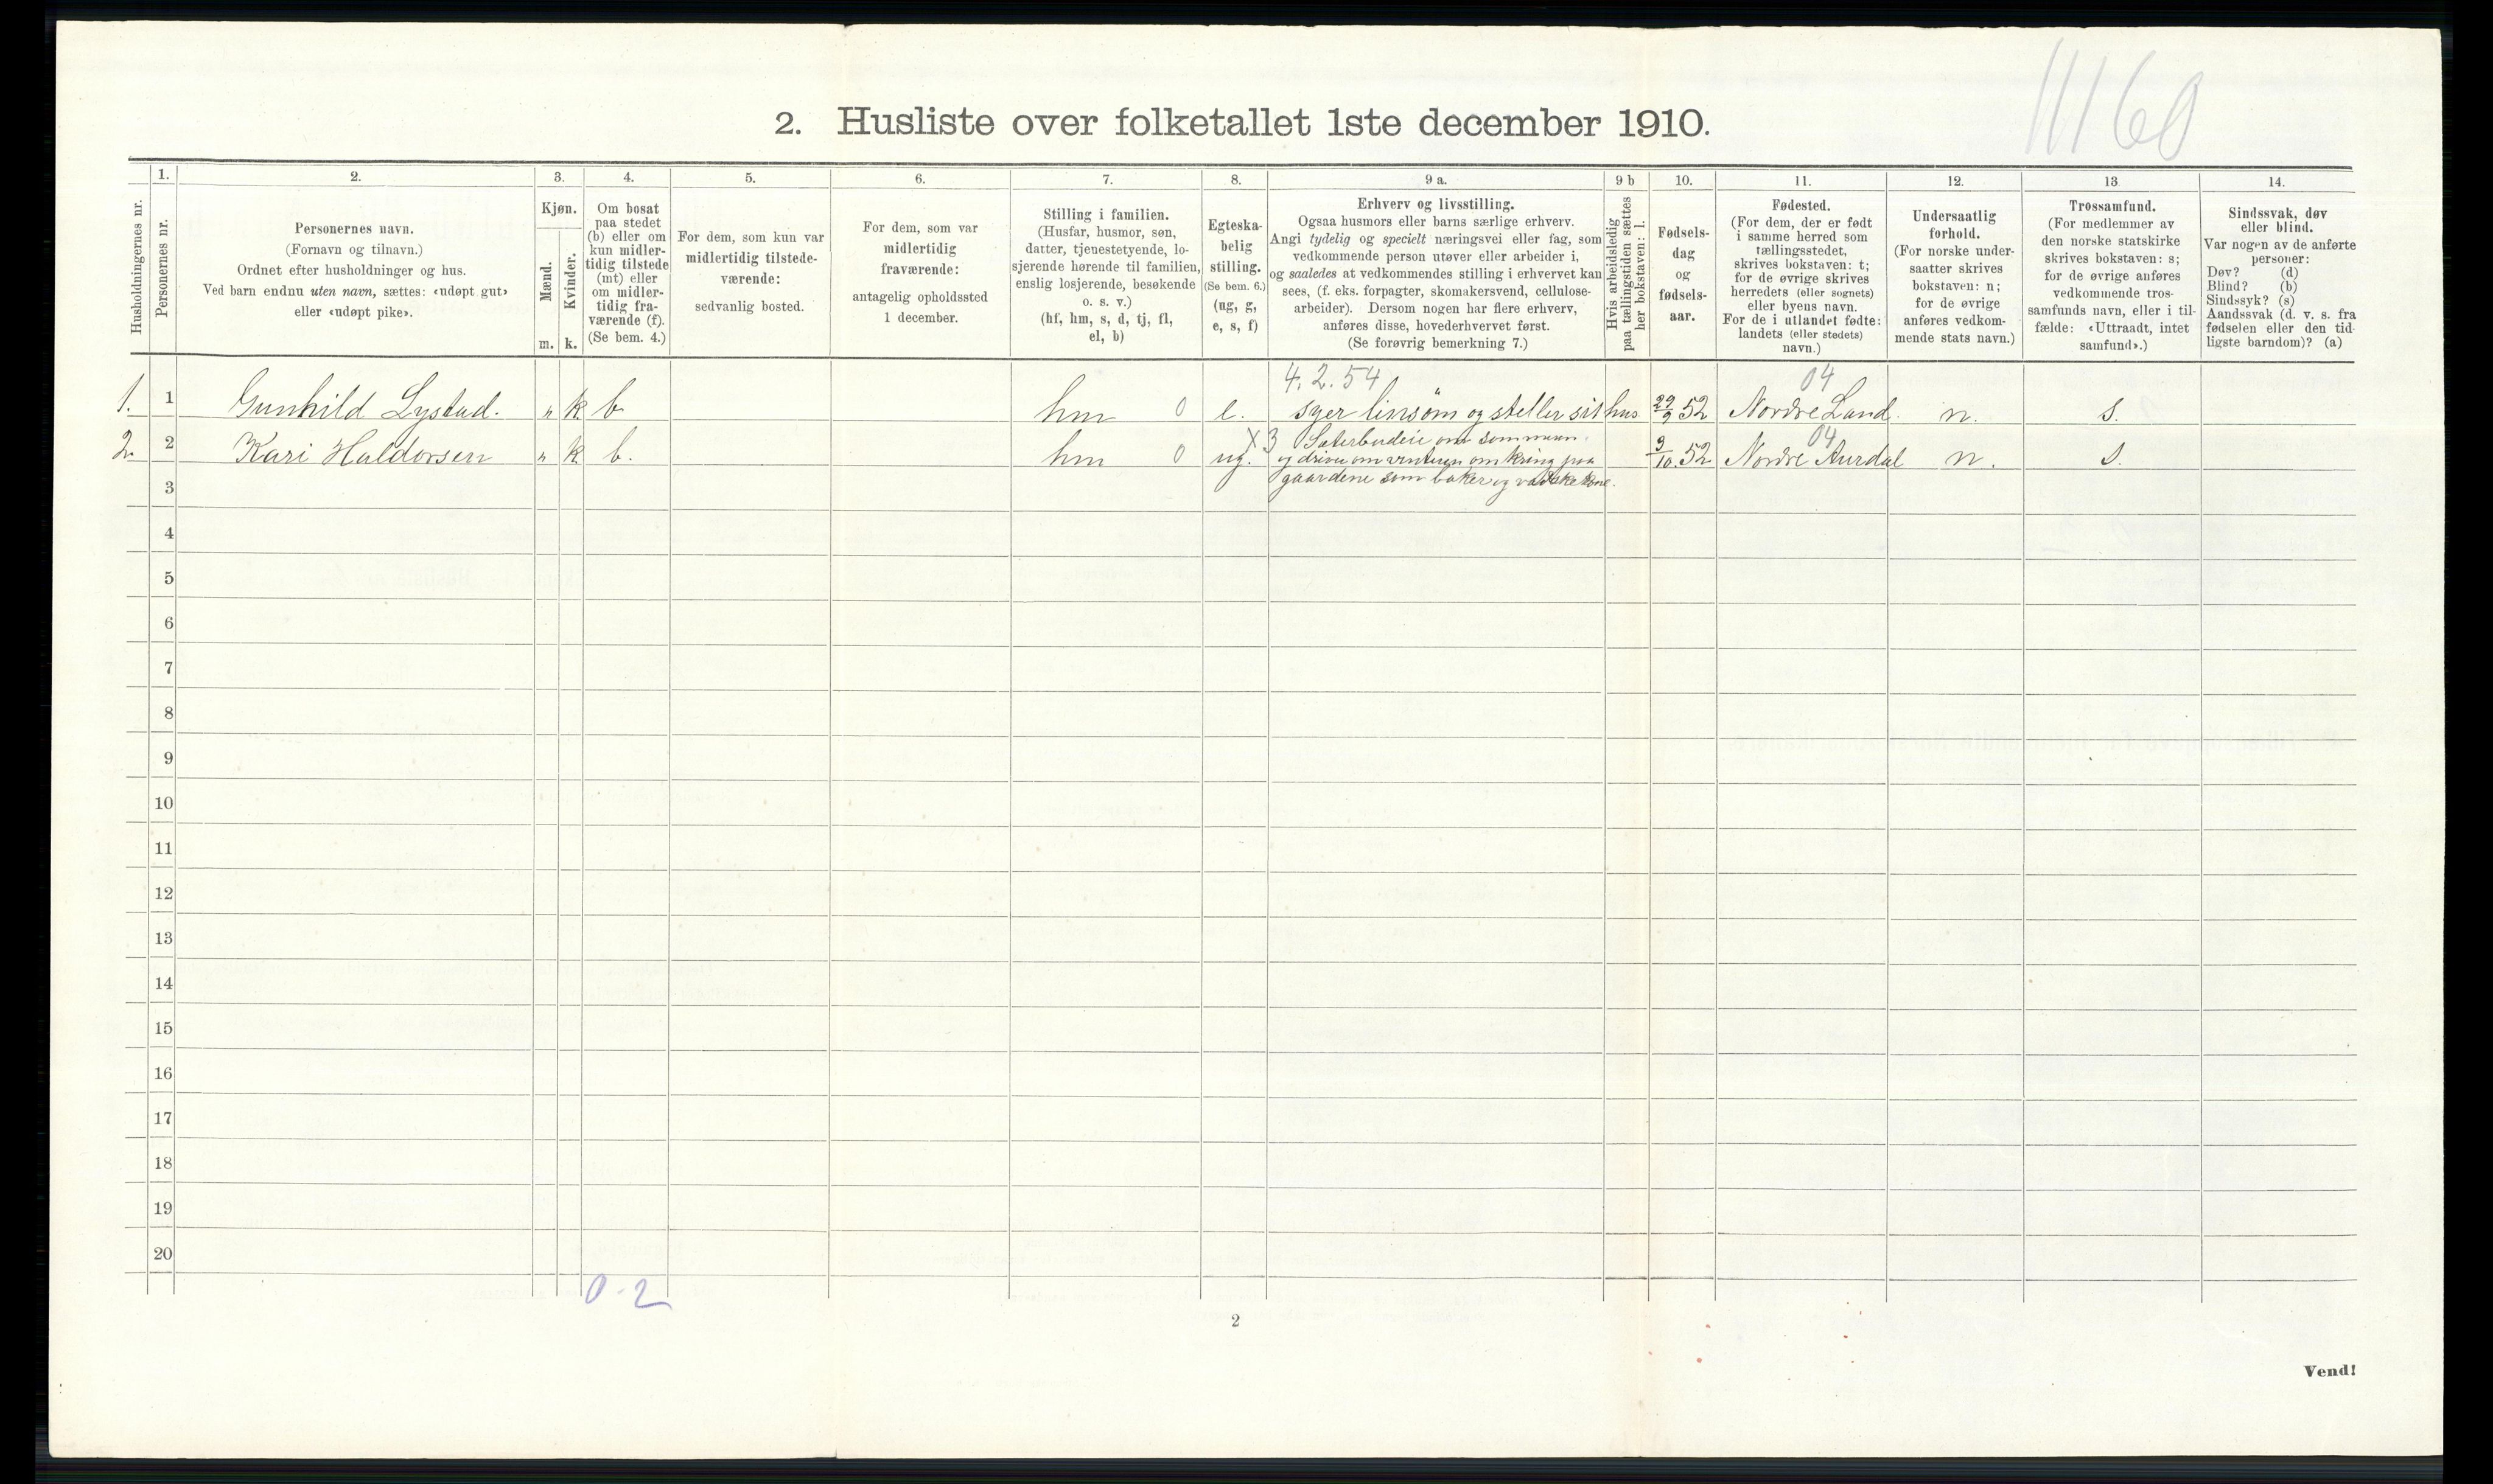 11160
2. Husliste over folketallet 1ste december 1910.
1. 2. 3. 4. 5. 6. 7. 8. 9 a. 9 b 10. 11. 12. 13 14.
Husholdningernes nr.
Personernes nr.
Personernes navn.
(Fornavn og tilnavn.)
Ordnet efter husholdninger og hus.
Ved barn endnu uten navn, sættes: «udøpt gut»
eller «udøpt pike».
Kjøn.
Mænd.
Kvinder.
m. k.
Om bosat
paa stedet
(b) eller om
kun midler-
tidig tilstede
(mt) eller
om midler-
tidig fra-
værende (f).
(Se bem. 4.)
For dem, som kun var
midlertidig tilstede-
værende:
sedvanlig bosted.
For dem, som var
midlertidig
fraværende:
antagelig opholdssted
1 december.
Stilling i familien.
(Husfar, husmor, søn,
datter, tjenestetyende, lo-
sjerende hørende til familien,
enslig losjerende, besøkende
o. s. v.)
(hf, hm, s, d, tj, fl,
el, b)
Egteska-
belig
stilling.
(Se bem. 6.)
(ug, g,
e, s, f)
Erhverv og livsstilling.
Ogsaa husmors eller barns særlige erhverv.
Angi tydelig og specielt næringsvei eller fag, som
vedkommende person utøver eller arbeider i,
og saaledes at vedkommendes stilling i erhvervet kan
sees, (f. eks. forpagter, skomakersvend, cellulose-
arbeider). Dersom nogen har flere erhverv,
anføres disse, hovederhvervet først.
(Se forøvrig bemerkning 7.)
Hvis arbeidsledig
paa tællingstiden sættes
her bokstaven: l.
Fødsels-
dag
og
fødsels-
aar.
Fødested.
(For dem, der er født
i samme herred som
tællingsstedet,
skrives bokstaven: t;
for de øvrige skrives
herredets (eller sognets)
eller byens navn.
For de i utlandet fødte:
landets (eller stedets)
navn.)
Undersaatlig
forhold.
(For norske under-
saatter skrives
bokstaven: n;
for de øvrige
anføres vedkom-
mende stats navn.)
Trossamfund.
(For medlemmer av
den norske statskirke
skrives bokstaven: s;
for de øvrige anføres
vedkommende tros-
samfunds navn, eller i til-
fælde: «Uttraadt, intet
samfund».)
Sindssvak, døv
eller blind.
Var nogen av de anførte
personer:
Døv? (d)
Blind? (b)
Sindssyk? (s)
Aandssvak (d. v. s. fra
fødselen eller den tid-
ligste barndom)? (a)
4. 2. 54 04
1. 1 Gunhild Lystad. " k b hm 0 e. syer linsöm og steller sit hus 29/9 52 Nordre Land. n. s.
X3 Sæterbudeie om sommeren 04
2. 2 Kari Haldorsen " k b. hm 0 ug. og driver om vinteren omkring paa 9/10. 52 Nordre Aurdal n. s.
3 gaardene som baker og vaskekone.
4
5
6
7
8
9
10
11
12
13
14
15
16
17
18
19
20
0-2
2
Vend!